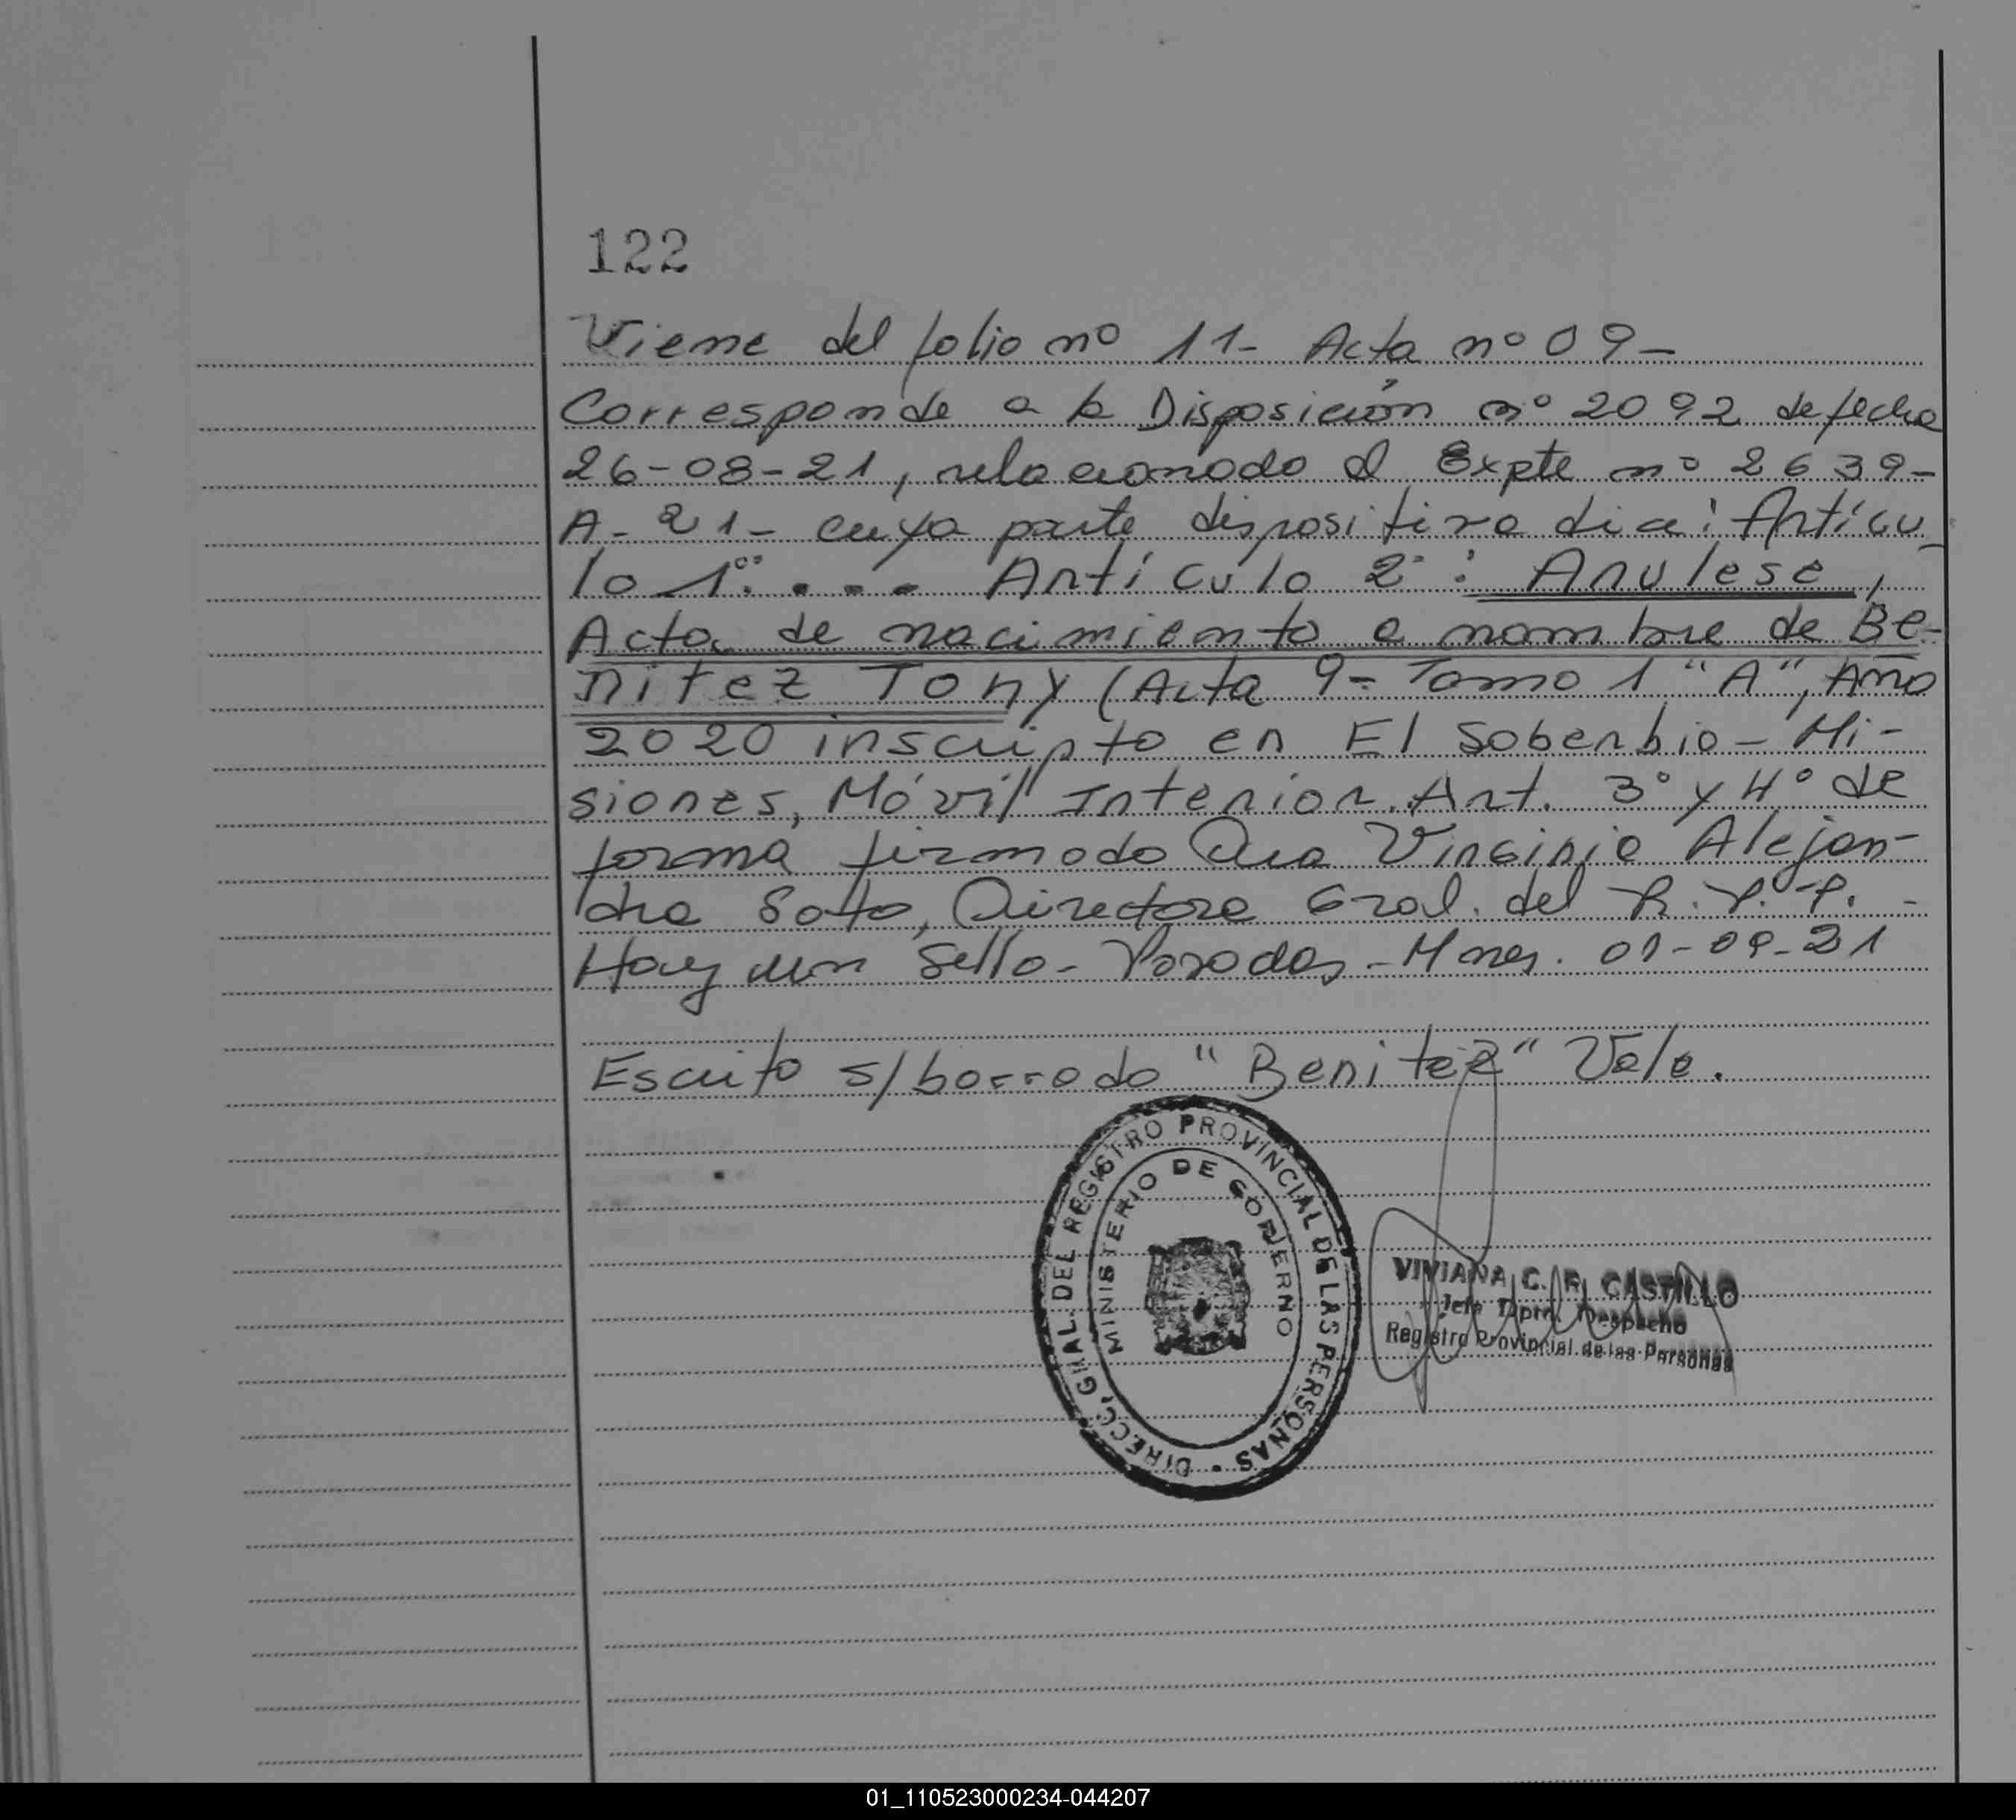 122
Viene del folio nº 11- Acta nº 09-
Corresponde a la Disposición nº 2092 de fecha
26-08-21, relacionado al Expte nº 2639-
A-21- cuya parte dispositiva dice: Artícu
lo 1º: .... Artículo 2º: Anulese,
Acta de nacimiento a nombre de Be-
nitez Tony (Acta 9- Tomo 1 "A", Año
2020 inscripto en El Soberbio - Mi-
siones, Móvil Interior. Art. 3º y 4º de
forma firmado Dra Virginia Alejan-
dra Sotto, Directora Gral. del R.P.P. -
Hay un Sello - Posadas - Mnes. -09-21
Escrito s/borrado "Benitez" Vale.
DIRECC. GRAL. DEL REGISTRO PROVINCIAL DE LAS PERSONAS
MINISTERIO DE GOBIERNO
VIVIANA C. R. CASTILLO
Jefa Dpto. Despacho
Registro Provincial de las Personas
01_110523000234-044207